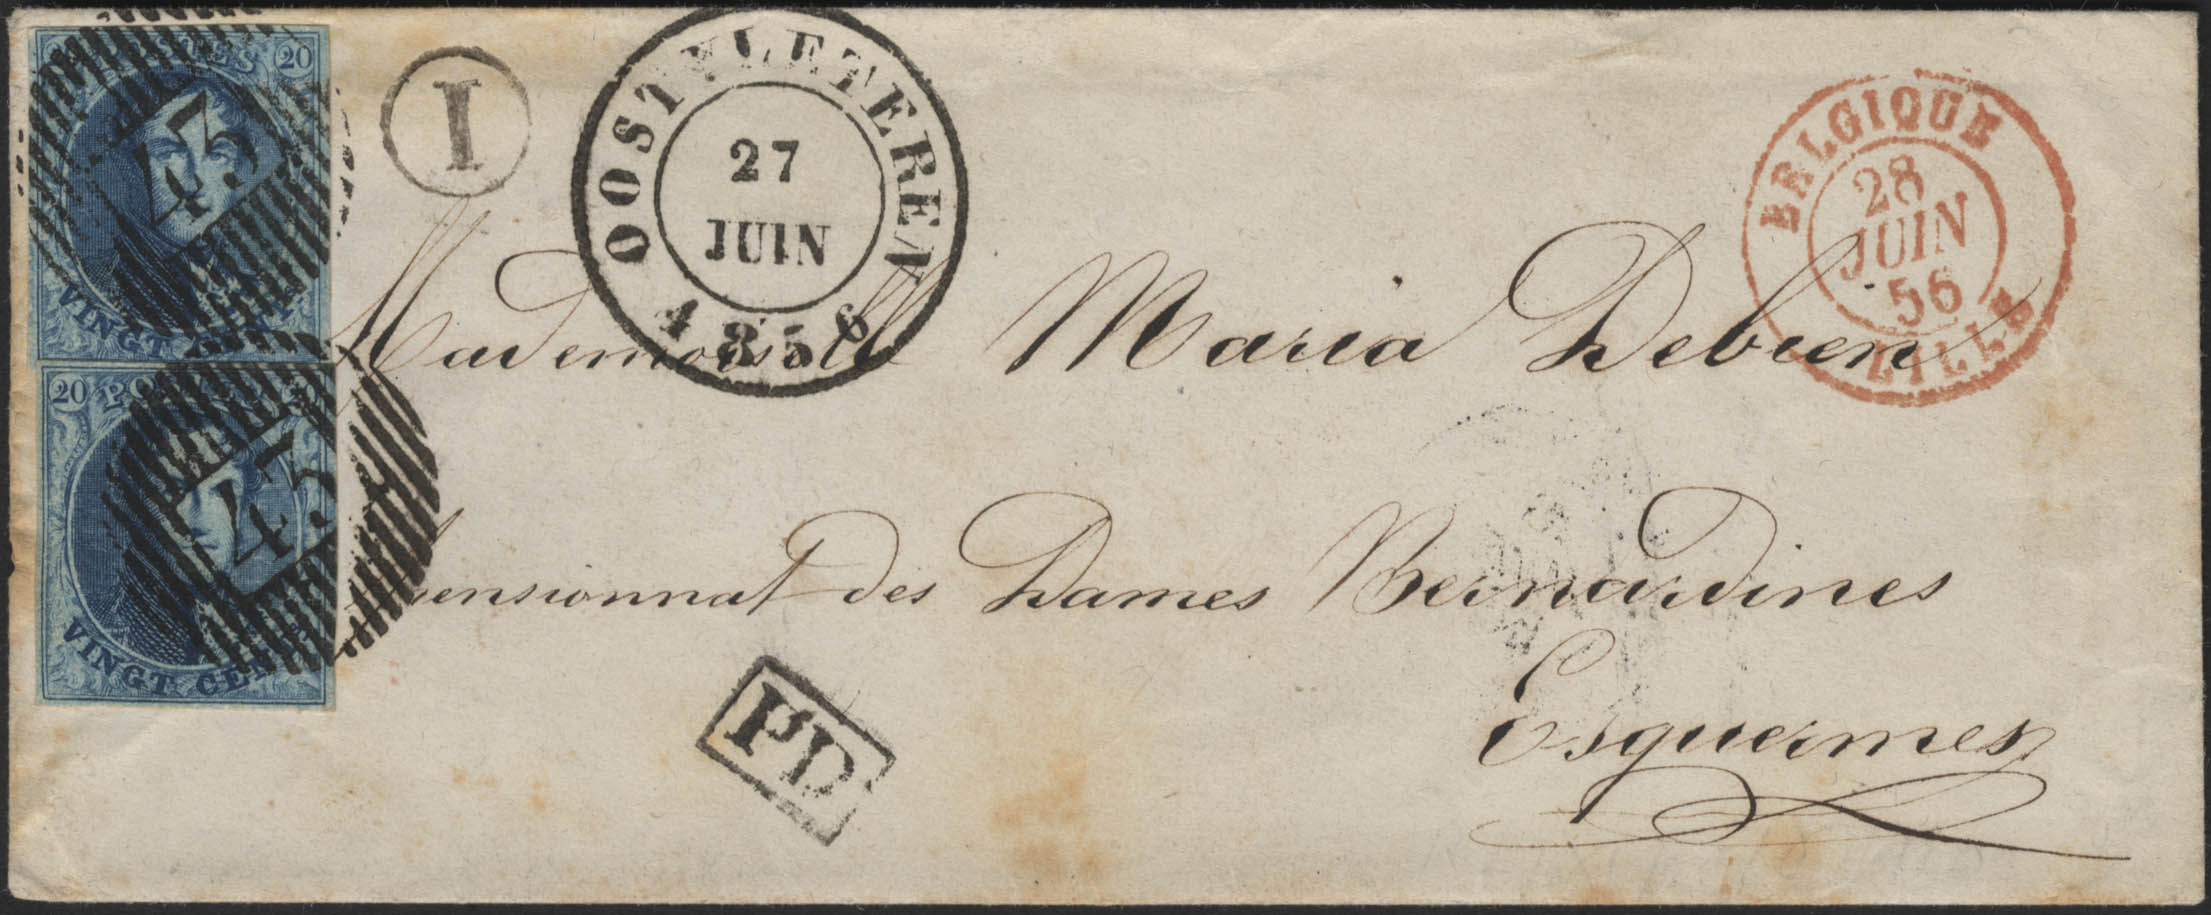 POSTES 20
43
VINGT CENT
20 POSTES
43
VINGT CENT
I
OOSTVLETEREN
27
JUIN
1856
BELGIQUE
28
JUIN
56
LILLE
Mademoiselle Maria Debien
Pensionnat des Dames Bernardines
Esquermes
PD